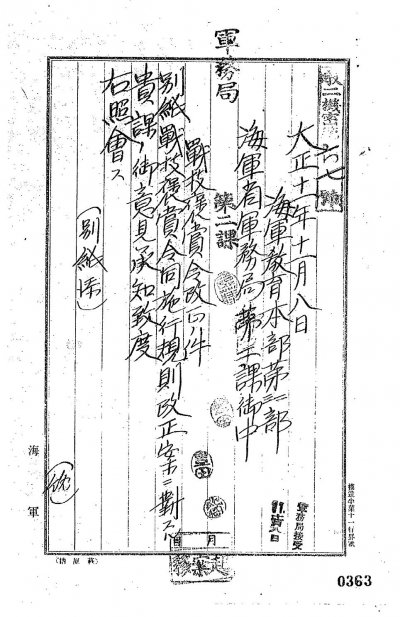 軍務局
教二機密第六七號
大正十一年十一月八日
海軍教育本部第二部
海軍省軍務局第二課御中
第二課
戰技褒賞令改正ノ件
別紙戰技褒賞令同施行規則改正案ニ對スル
貴課ノ御意見承知致度
右照會ス
(別紙添)
海軍
軍務局接受
0363